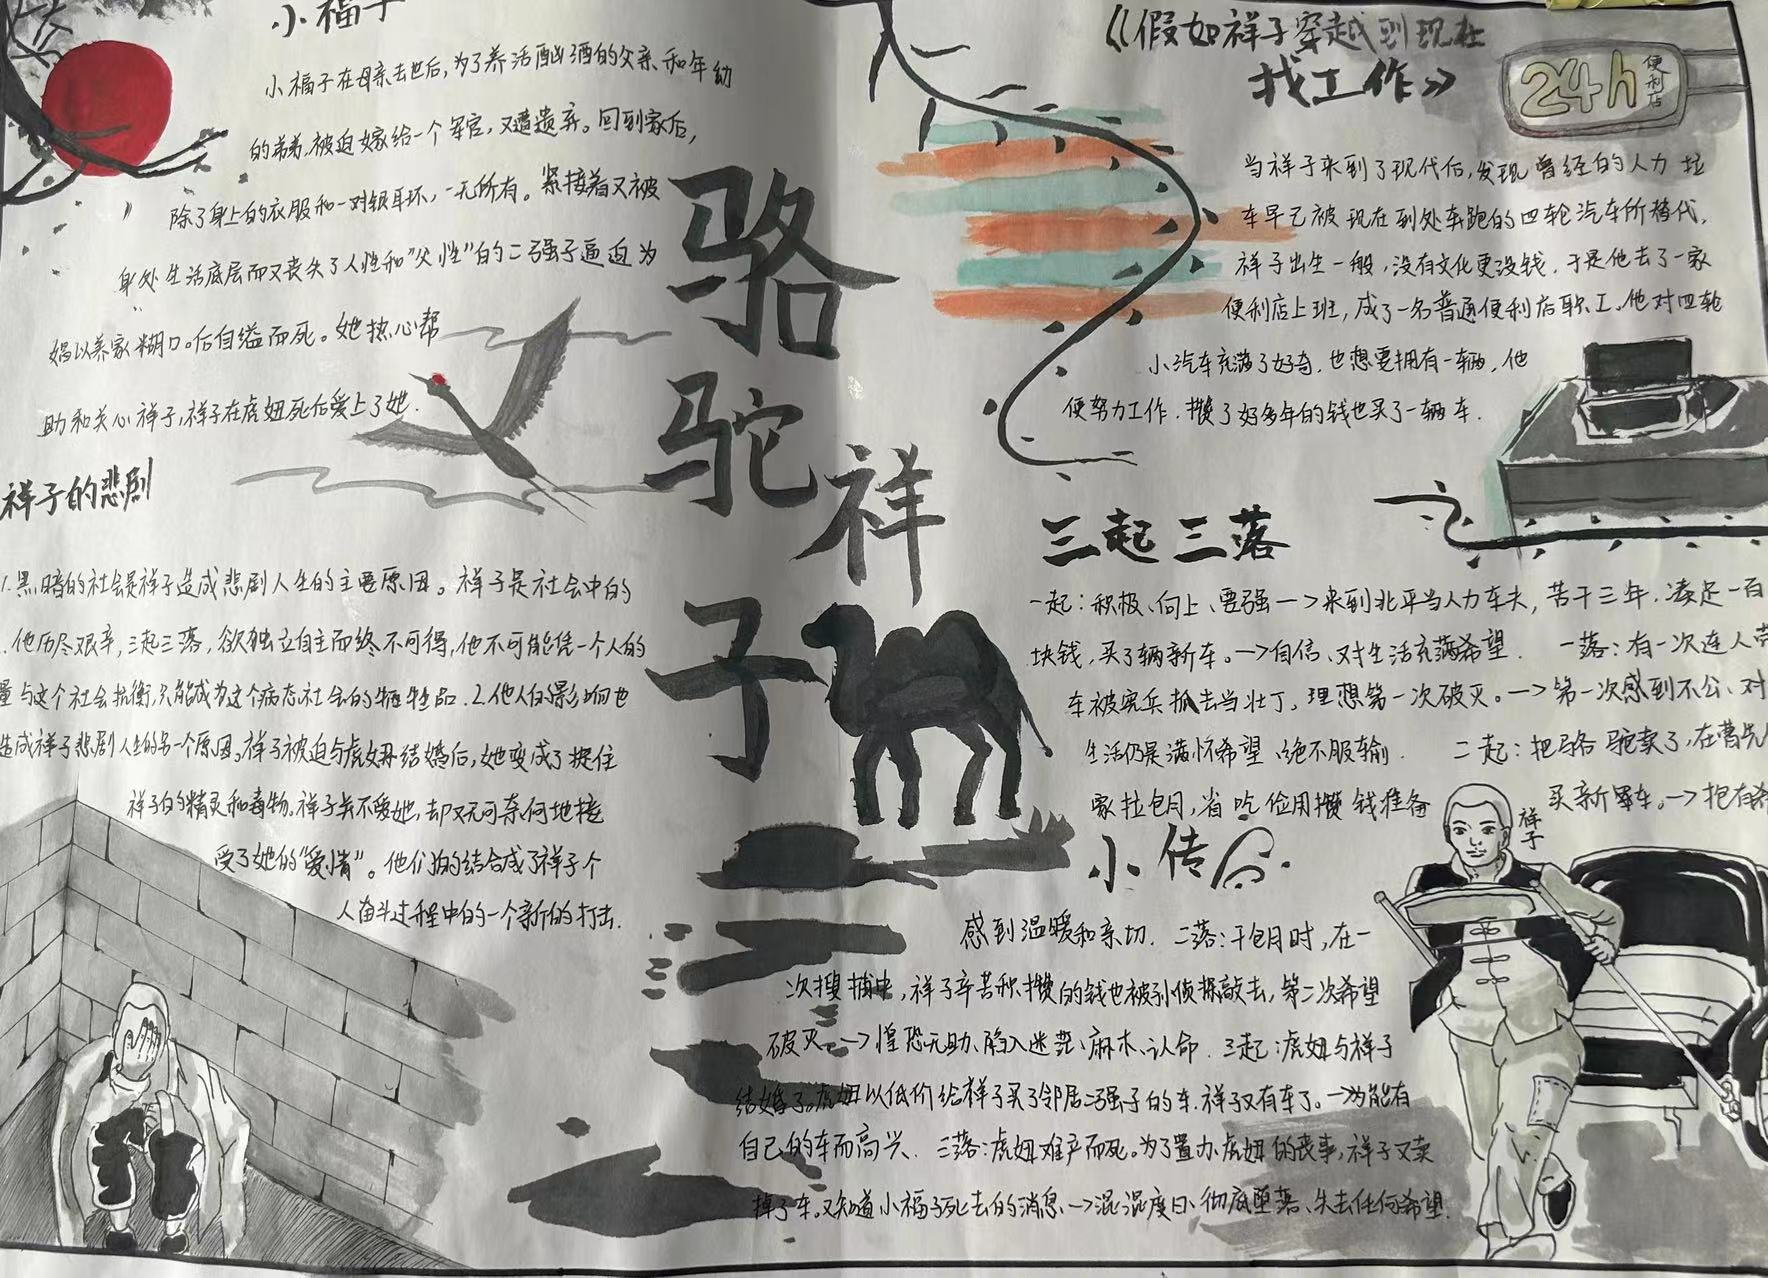 小福子
小福子在母亲去世后,为了养活酗酒的父亲和年幼
的弟弟,被迫嫁给一个军官,又遭遗弃。回到家后,
除了身上的衣服和一对银耳环,一无所有。紧接着又被
身处生活底层而又丧失了人性和"父性"的二强子逼迫为
娼以养家糊口。后自缢而死。她热心帮
助和关心祥子,祥子在虎妞死后爱上了她.
祥子的悲剧
1.黑暗的社会是祥子造成悲剧人生的主要原因。祥子是社会中的
.他历尽艰辛,三起三落,欲独立自主而终不可得,他不可能凭一个人的
量与这个社会抗衡,只能成为这个病态社会的牺牲品.2.他人的影响也
造成祥子悲剧人生的另一个原因。祥子被迫与虎妞结婚后,她变成了捉住
祥子的精灵和毒物。祥子并不爱她,却又无可奈何地接
受了她的"爱情"。他们的结合成了祥子个
人奋斗过程中的一个新的打击.
骆
驼
祥
子
《假如祥子穿越到现在
找工作》
24h
便利店
当祥子来到了现代后,发现曾经的人力拉
车早已被现在到处车跑的四轮汽车所替代,
祥子出生一般,没有文化更没钱.于是他去了一家
便利店上班,成了一名普通便利店职工。他对四轮
小汽车充满了好奇,也想要拥有一辆,他
便努力工作.攒了好多年的钱也买了一辆车.
三起三落
一起:积极、向上、要强一>来到北平当人力车夫,苦干三年.凑足一百
块钱,买了辆新车。一>自信、对生活充满希望. 一落:有一次连人带
车被宪兵抓去当壮丁,理想第一次破灭。一>第一次感到不公、对
生活仍是满怀希望、绝不服输. 二起:把骆驼卖了,在曹先
家拉包月,省吃俭用攒钱准备
买新车。一>抱有希
小传
祥子
感到温暖和亲切. 二落:干包月时,在一
次搜捕中,祥子辛苦积攒的钱也被孙侦探敲去,第二次希望
破灭.一>惶恐无助、陷入迷茫、麻木、认命. 三起:虎妞与祥子
结婚了。虎妞以低价给祥子买了邻居二强子的车.祥子又有车了。一>为能有
自己的车而高兴. 三落:虎妞难产而死。为了置办虎妞的丧事,祥子又卖
掉了车。又知道小福子死去的消息一>混混度日、彻底堕落、失去任何希望.